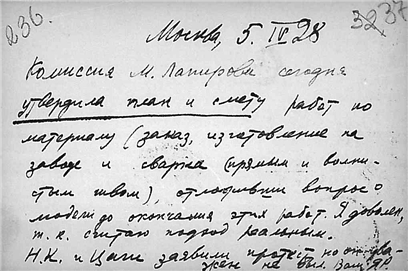 236.
3237
Москва, 5. IV 28
Комиссия М. Лапирова сегодня
утвердила план и смету работ по
материалу (заказ, изготовление на
заводе и сварка (прямым и волни-
стым швом), отложивши вопрос о
модели до окончания этих работ. Я доволен,
т. к. считаю подход реальным.
Н. К. и Цаги заявили протест, но он ува-
жен не был. Ваш